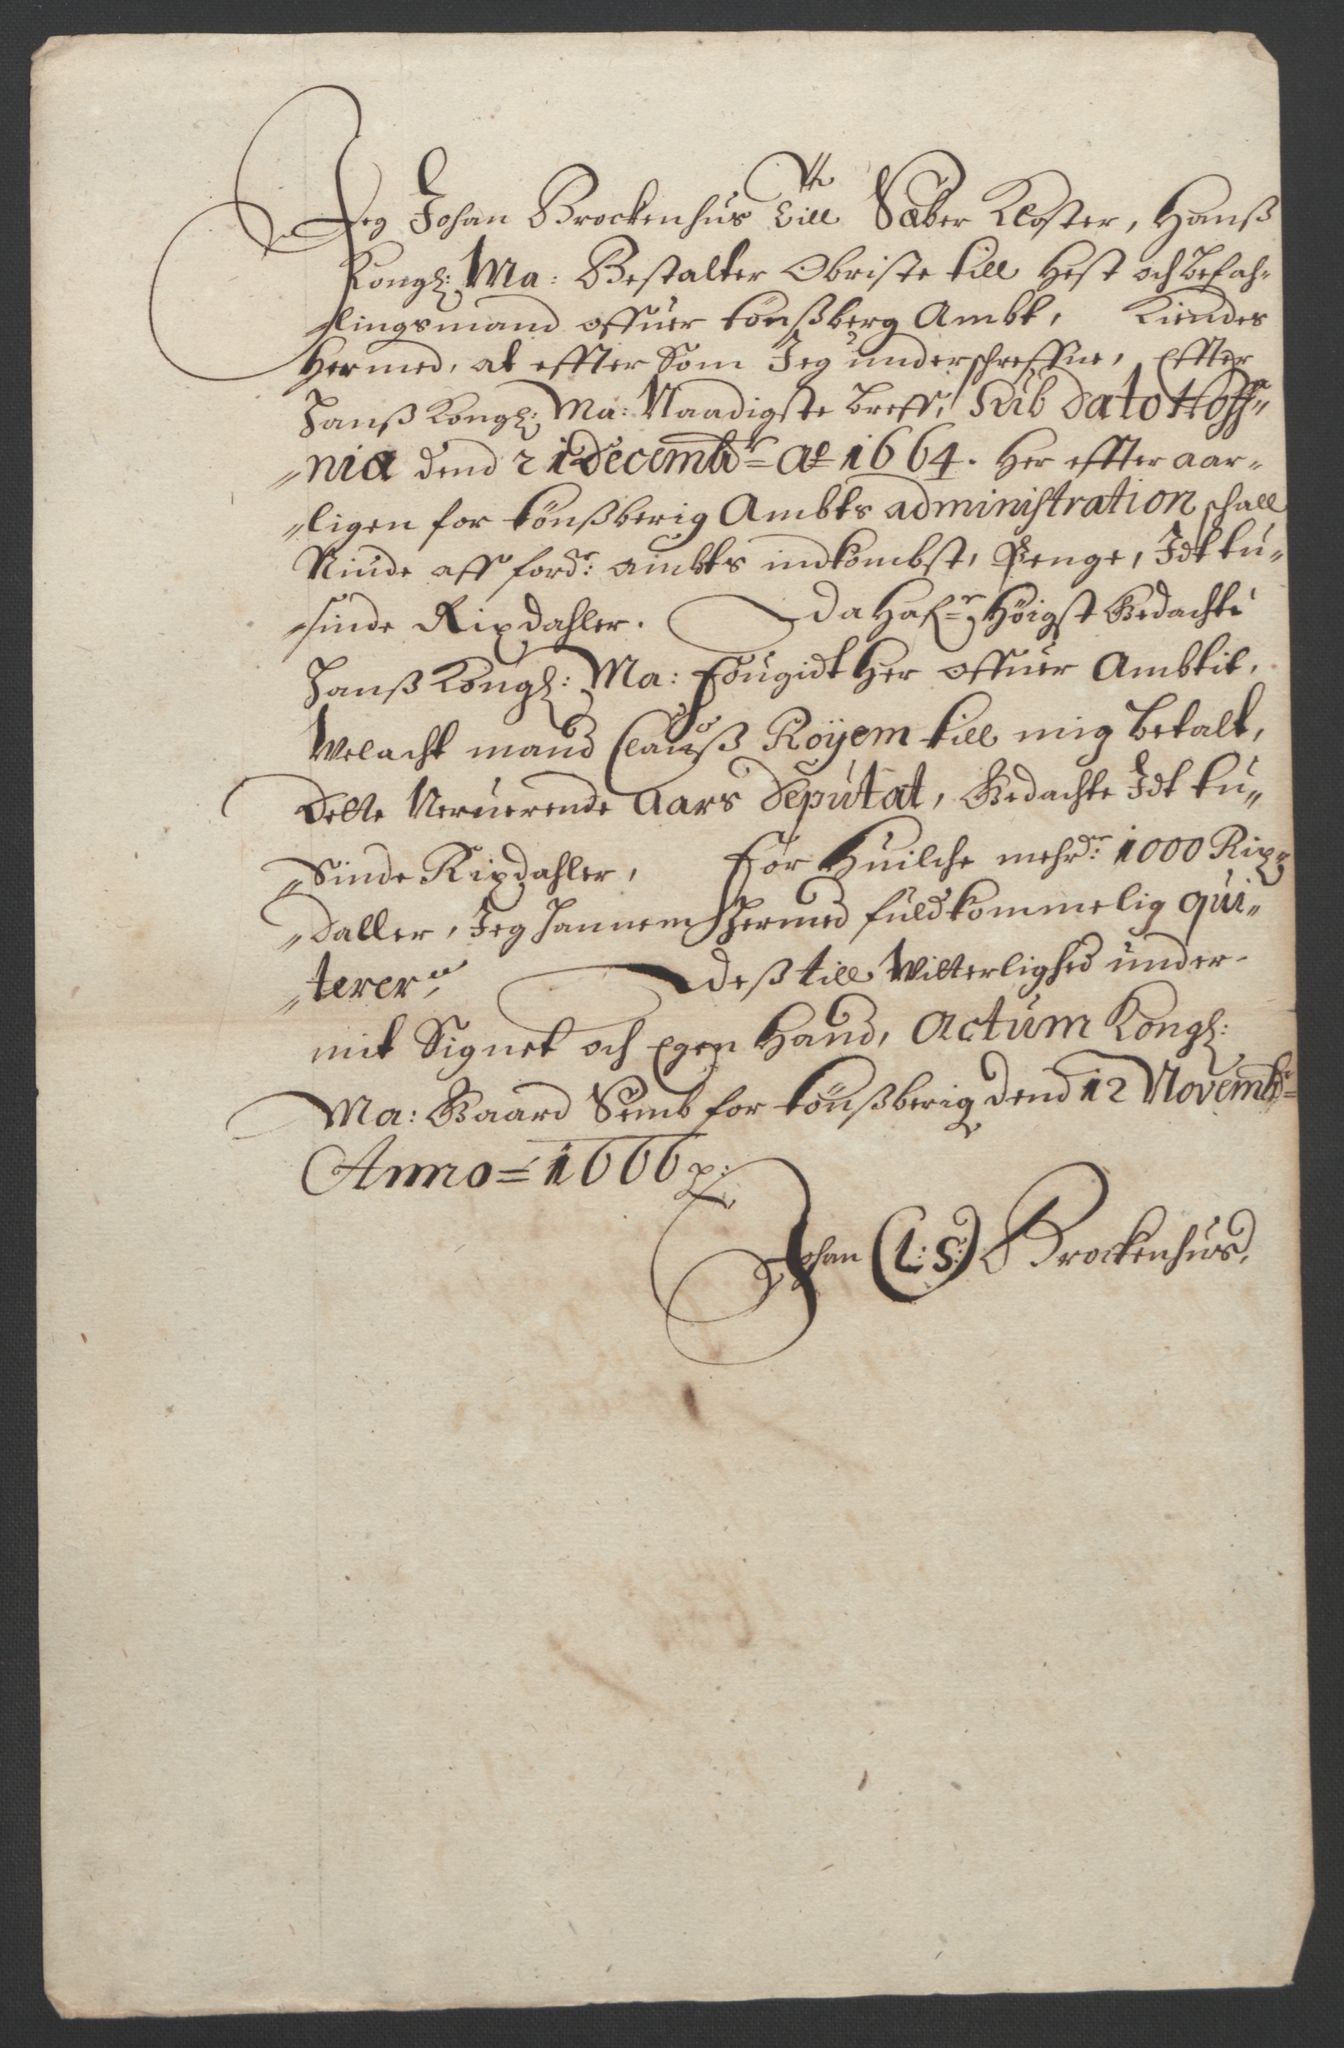 Jeg Johan Brockenhus till Sæber Kloster, Hanß
Kongl: Ma: Bestalter Obriste till Hest och befah-
lingsmand offuer tønßberg Ambt, Kiendes
hermed, at effter som Jeg underschreffne, Effter
Hanß Kongl: Ma: Naadigste breff, Sub dato Haff-
nia dend 21 Decembr Ao 1664. her effter aar-
ligen for tønßberig Ambts administration schall
Niude aff ford: ambts indkombst, Penge, Idt tu-
sinde Rixdahler. Da hafr Høigst Bedachte
Hanß Kongl: Ma: Fougidt her offuer Ambtit,
Velacht mand Clauß Röyem till mig betalt,
Dette Neruerende Aars Deputat, Bedachte Idt tu-
sinde Rixdahler, For Huilche mehrd: 1000 Rix-
daller, Jeg hannem hermed fuldkommelig qui-
terer. Deß till Witterlighed under
mit Signet och egen Hand, Actum Kongl:
Ma: Gaard Semb for tønßberig dend 12 Novembr
Anno 1666
Johan (L: S:) Brockenhus,